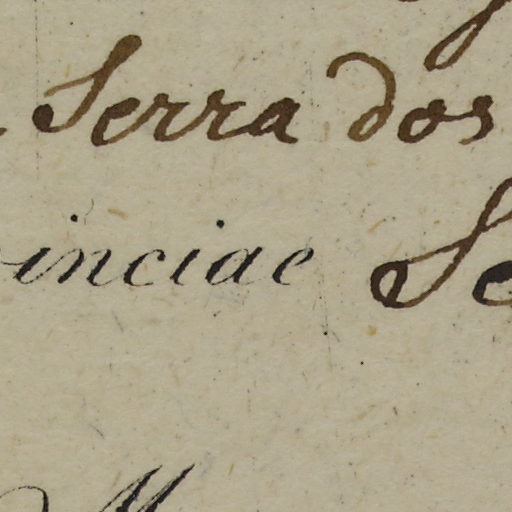 Serra dos
inciae Se
M